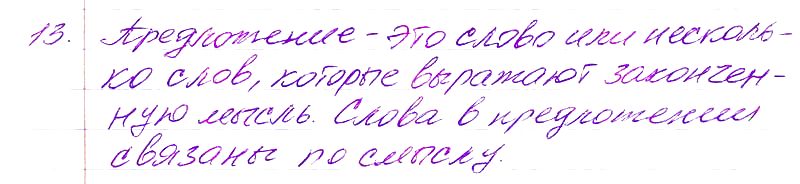 13. Предложение - это слово или несколь-
ко слов, которые выражают закончен-
ную мысль. Слова в предложении
связаны по смыслу.